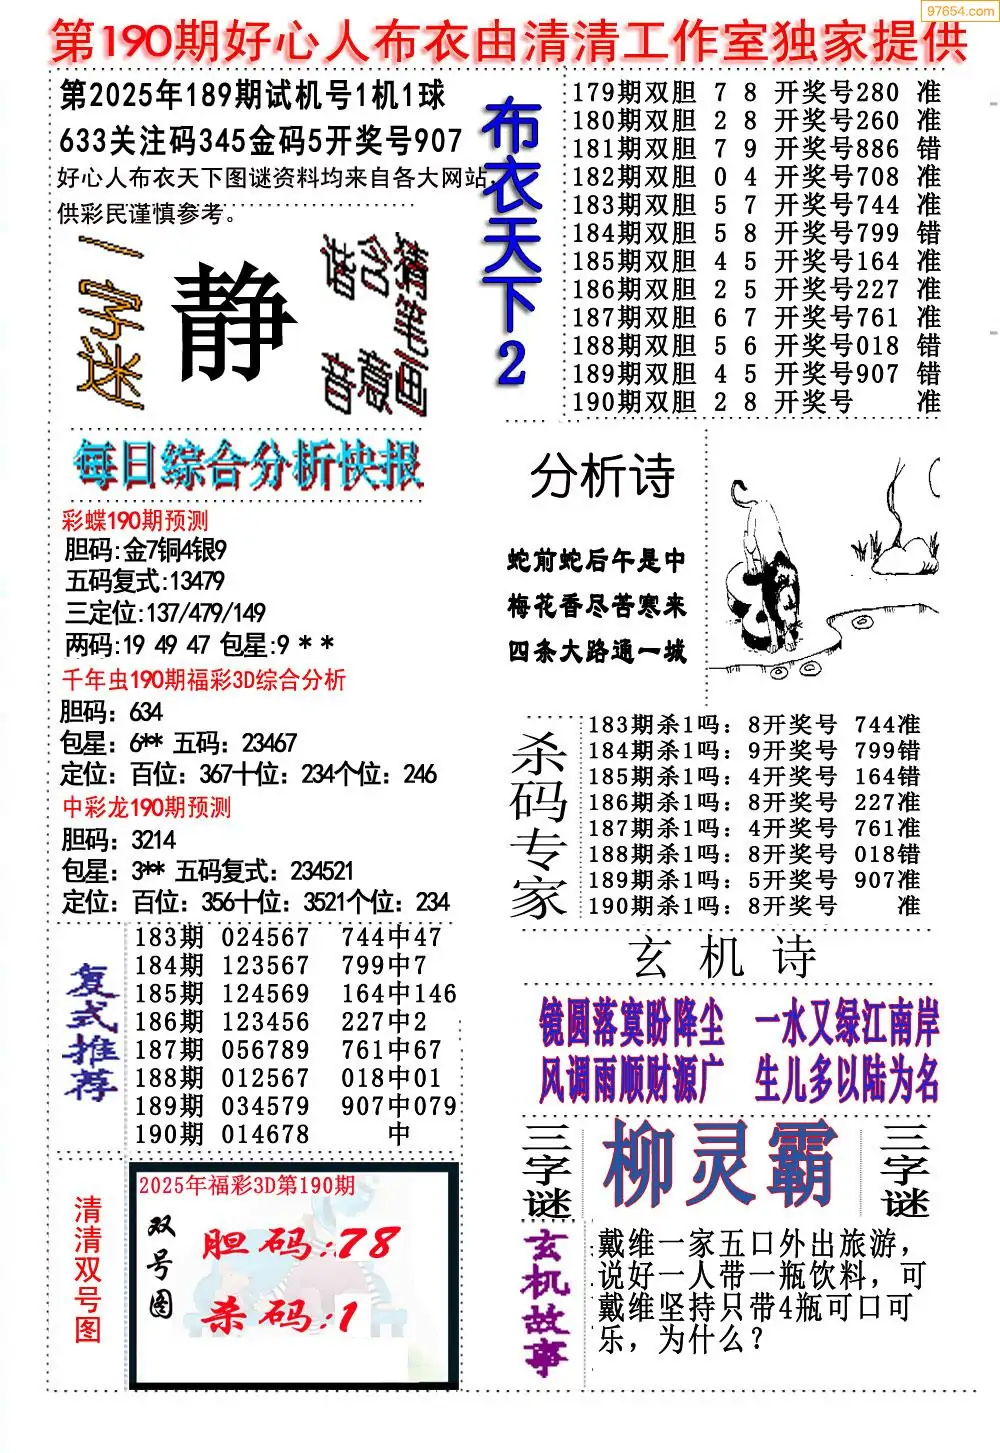 97654.com
第190期好心人布衣由清清工作室独家提供
第2025年189期试机号1机1球
633关注码345金码5开奖号907
好心人布衣天下图谜资料均来自各大网站,
供彩民谨慎参考。
一字迷
静
猜笔画
含意
谐音
布衣天下2
179期双胆 7 8 开奖号280 准
180期双胆 2 8 开奖号260 准
181期双胆 7 9 开奖号886 错
182期双胆 0 4 开奖号708 准
183期双胆 5 7 开奖号744 准
184期双胆 5 8 开奖号799 错
185期双胆 4 5 开奖号164 准
186期双胆 2 5 开奖号227 准
187期双胆 6 7 开奖号761 准
188期双胆 5 6 开奖号018 错
189期双胆 4 5 开奖号907 错
190期双胆 2 8 开奖号 准
每日综合分析快报
彩蝶190期预测
胆码:金7铜4银9
五码复式:13479
三定位:137/479/149
两码:19 49 47 包星:9 * *
千年虫190期福彩3D综合分析
胆码：634
包星：6** 五码：23467
定位：百位：367十位：234个位：246
中彩龙190期预测
胆码：3214
包星：3** 五码复式：234521
定位：百位：356十位：3521个位：234
分析诗
蛇前蛇后午是中
梅花香尽苦寒来
四条大路通一城
杀码专家
183期杀1吗：8开奖号 744准
184期杀1吗：9开奖号 799错
185期杀1吗：4开奖号 164错
186期杀1吗：8开奖号 227准
187期杀1吗：4开奖号 761准
188期杀1吗：8开奖号 018错
189期杀1吗：5开奖号 907准
190期杀1吗：8开奖号 准
复式推荐
183期 024567 744中47
184期 123567 799中7
185期 124569 164中146
186期 123456 227中2
187期 056789 761中67
188期 012567 018中01
189期 034579 907中079
190期 014678 中
玄机诗
镜圆落寞盼降尘 一水又绿江南岸
风调雨顺财源广 生儿多以陆为名
三字谜
柳灵霸
三字谜
清清双号图
2025年福彩3D第190期
双号图
胆码:78
杀码:1
玄机故事
戴维一家五口外出旅游，
说好一人带一瓶饮料，可
戴维坚持只带4瓶可口可
乐，为什么？